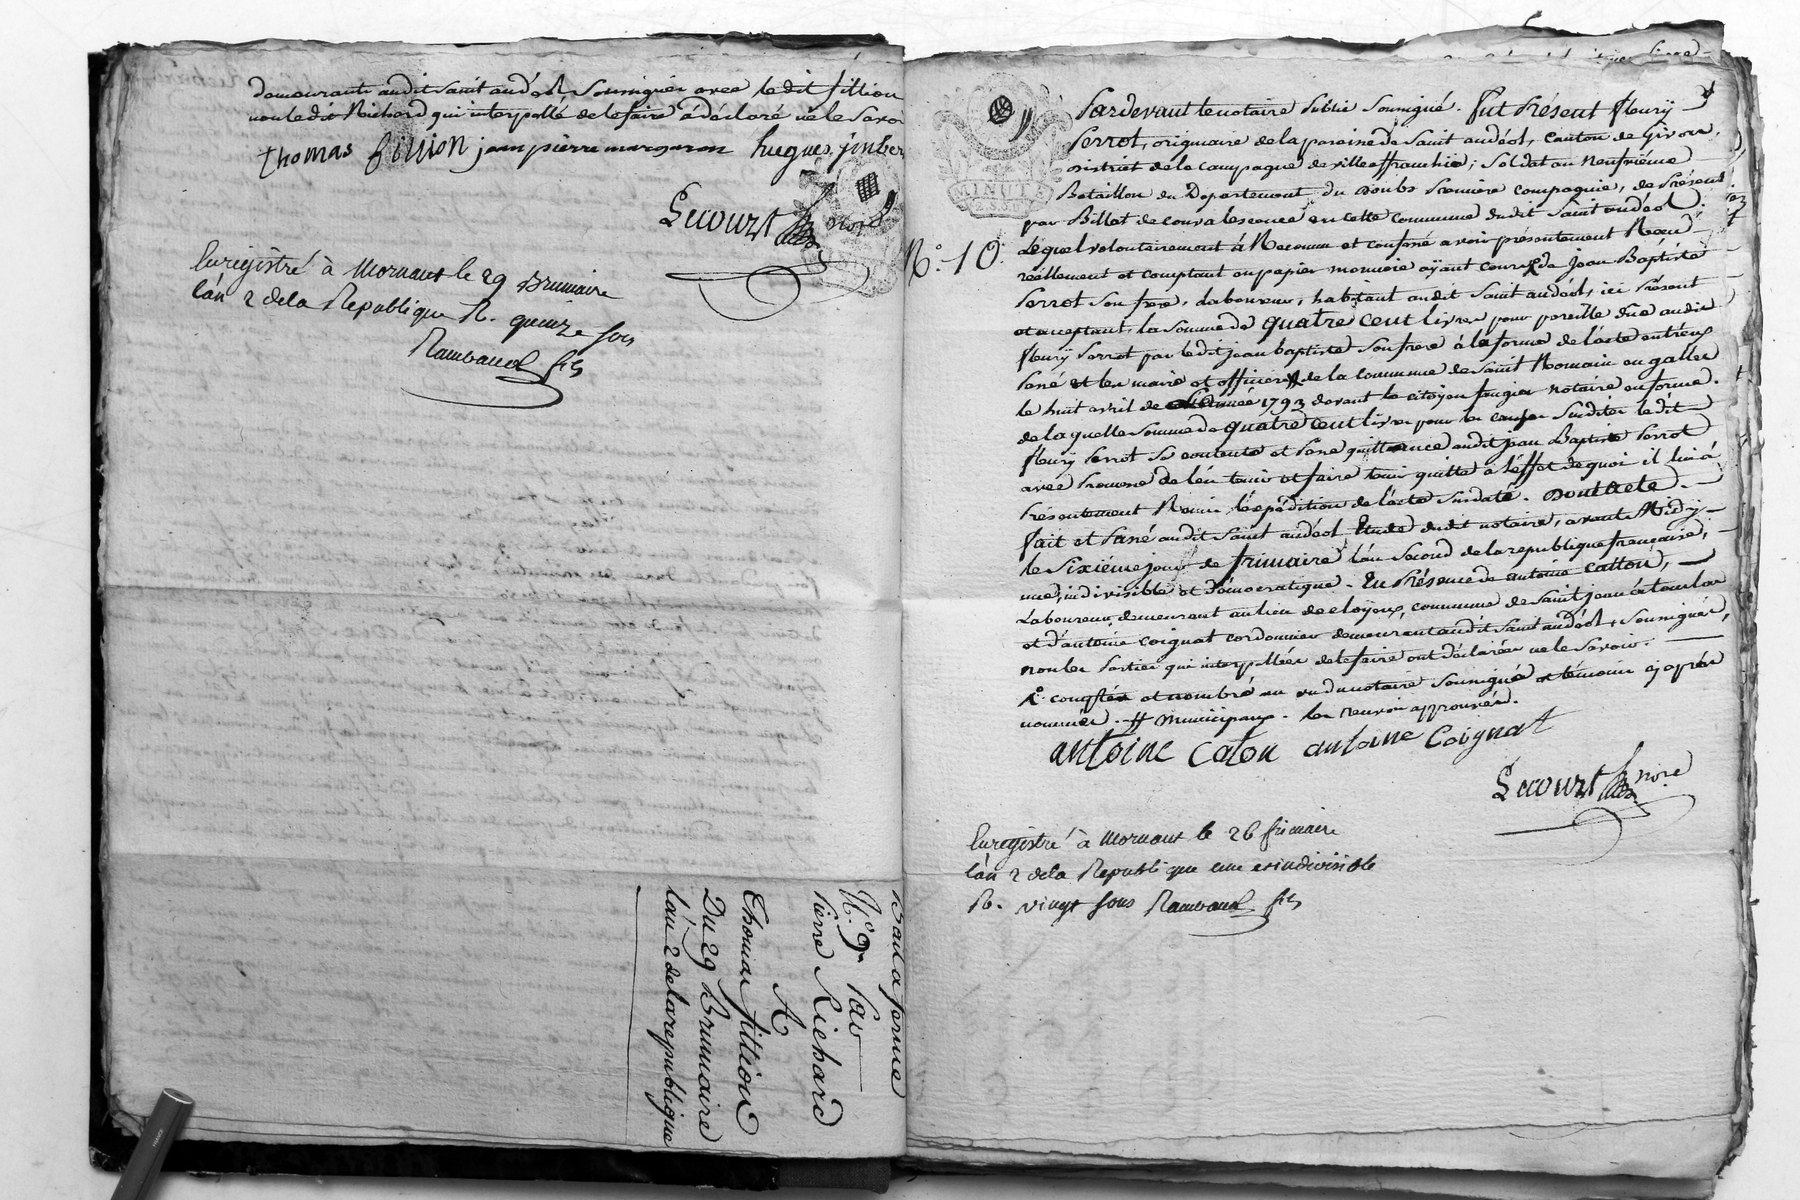 demeurants audit Saint andéol Soussignés avec ledit fillion
non ledit Richard qui interpellé de le faire a déclaré ne le Savoir
Thomas fillion jean pierre margaron hugues jinber
Lecourt nore
Enregistré à Mornant le 29 Brumaire
lán 2 dela Republique R. quinze sous
Rambaud fils
Bail a ferme
N.º 9 Par
Pierre Richard
A
Thomas fillion
Du 29 Brumaire
lán 2 delarepublique
N.º 10.
MINUTE
Pardevant le notaire Public Soussigné. fut Présent fleurÿ
Perrot, originaire de la paroisse de Saint andéol, canton de Givors,
District de la Campagne de villeaffranchie; Soldat au Neufviéme
Bataillon du Departement du Doubs Premiere compagnie, de Présent
par Billet de convalescence en cette commune dudit Saint andéol.
Lequel volontairement á Reconnu et confessé avoir présentement Recu
réellement et comptant en papier monnoie aÿant cours de Jean Baptiste
Perrot Son frere, Laboureur, habitant audit Saint andéol, ici Présent
et acceptant, la Somme de quatre cent livres pour pareille due audit
fleurÿ Perrot par ledit jean baptiste Son frere á la forme de l'acte entr'eux
Passé et les maire et officiers de la Commune de Saint Romain en gallier
le huit avril de l'année 1793 devant le citoyen frugier notaire en forme.
de laquelle Somme de quatre cent livres pour les causes Susdites ledit
fleurÿ Perrot Se contente et Passe quittance audit jean Baptiste Perrot
avéc Promesse de l'en tenir et faire tenir quitte á l'éffet dequoi il lui á
Présentement Remis l'éxpédition de l'acte Susdaté. Dont Acte.
fait et Passé audit Saint andéol Etude dudit notaire, avant Midÿ
le Sixiéme jour de frimaire lán Second de la republique francaise,
une, indivisible et démocratique. En Présence de antoine Catton,
Laboureur demeurant au lieu de cloyeux, commune de Saint jean de toulas
et d'antoine Coignat cordonnier demeurant audit Saint andéol, Soussignés,
non les Parties qui interpellées de le faire ont déclarées ne le Savoir.
compté et nombré au vu du notaire Soussigné et témoins cy après
nommés. # Municipaux. les renvois approuvés.
antoine Caton antoine Coignat
Lecourt nore
Enregistré à Mornant le 26 frimaire
lán 2 dela Republique une et indivisible
R. vingt sous Rambaud fils